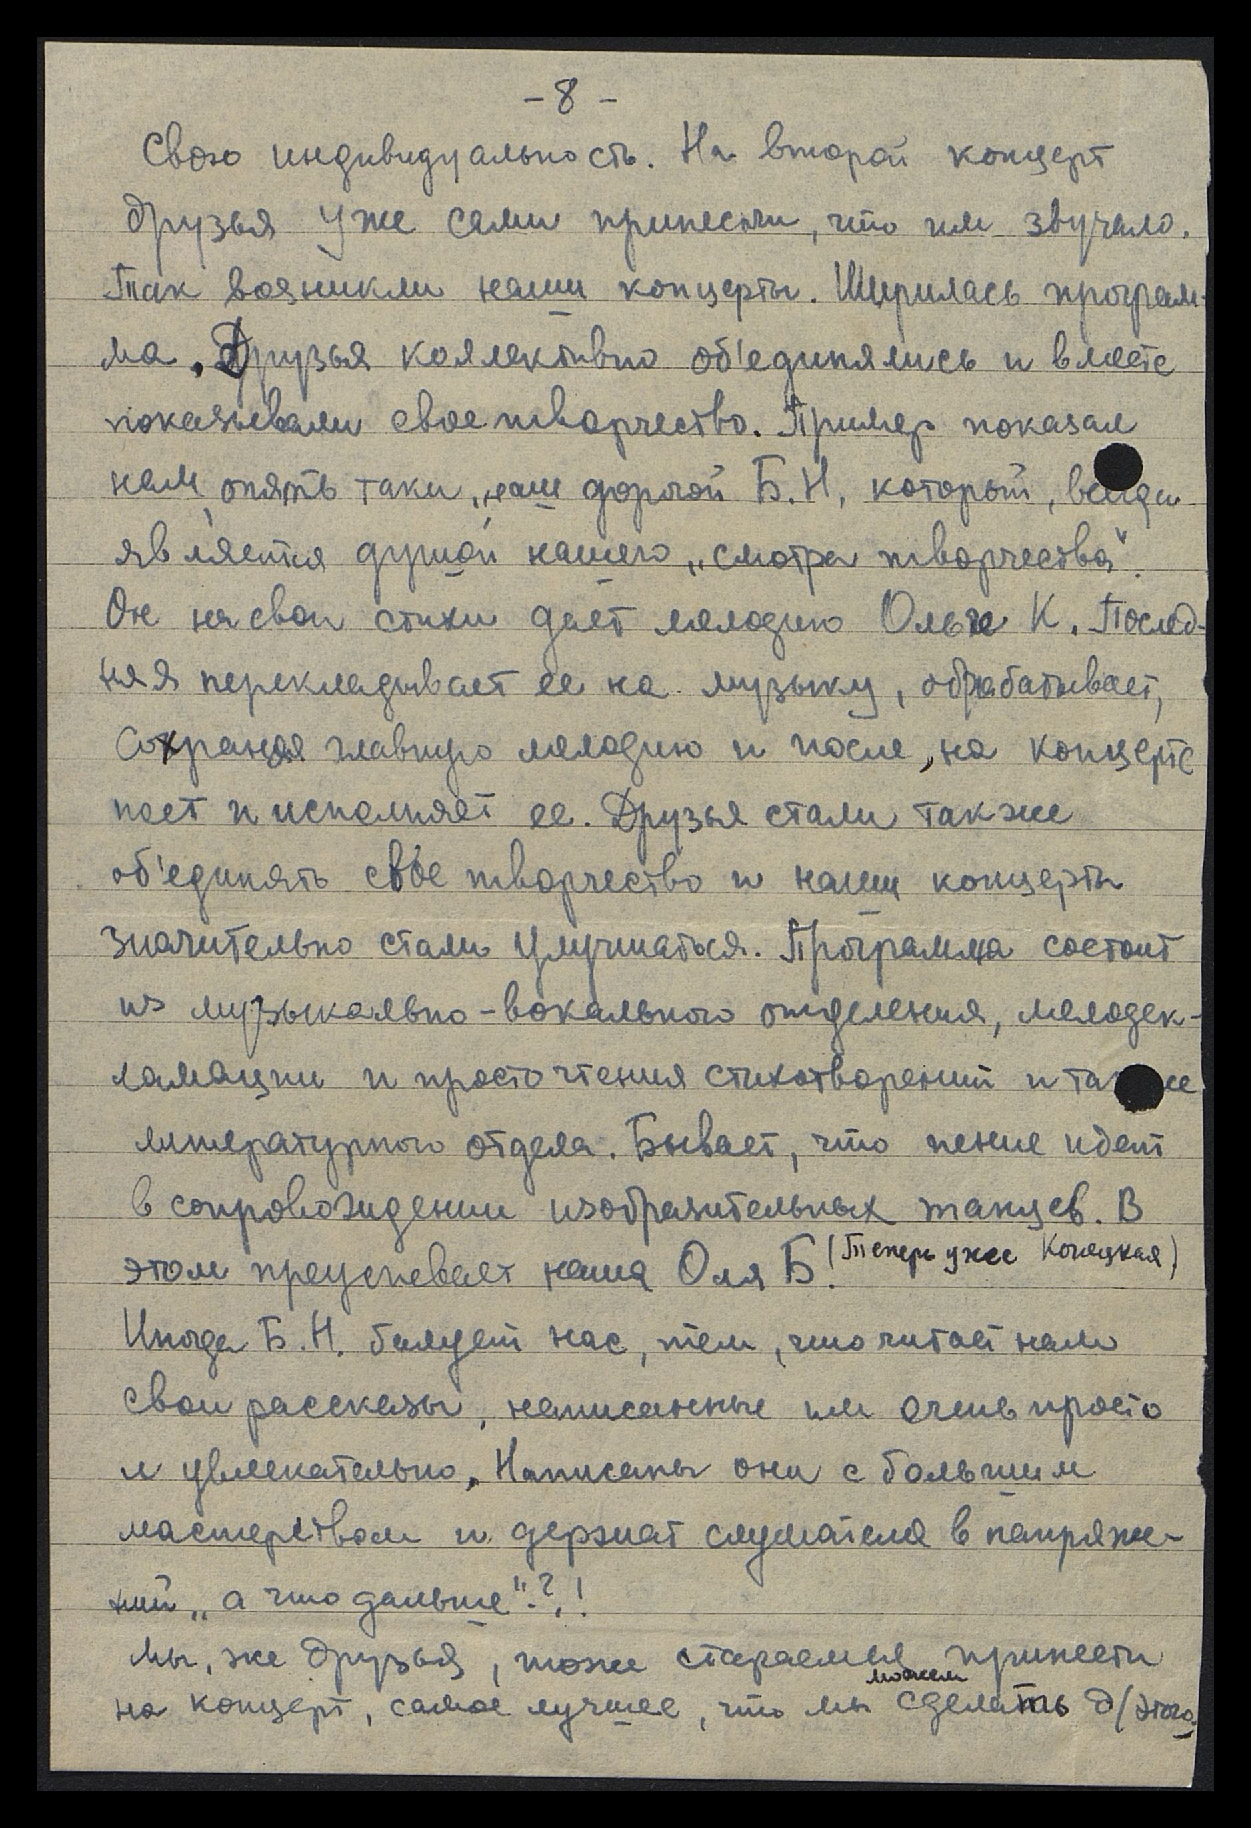 - 8 -
Свою индивидуальность. На второй концерт
друзья уже сами принесли, что им звучало.
Так возникли наши концерты. Ширилась програм-
ма. Друзья коллективно об'единялись и вместе
показывали свое творчество. Пример показал
нам опять таки, наш дорогой Б.Н, который, всегда
является душой нашего „смотра творчества".
Он на свои стихи дает мелодию Ольге К. Послед-
няя перекладывает ее на музыку, обрабатывает,
Сохраняя главную мелодию и после, на концерте
поет и исполняет ее. Друзья стали также
об'единять свое творчество и наши концерты
значительно стали улучшаться. Программа состоит
из музыкально-вокального отделения, мелодек-
ламации и просто чтения стихотворений и также
литературного отдела. Бывает, что пение идет
в сопровождении изобразительных танцев. В
этом преуспевает наша Оля Б. (Теперь уже Конецкая)
Иногда Б.Н. балует нас, тем, что читает нам
свои рассказы, написанные им очень просто
и увлекательно. Написаны они с большим
мастерством и держат слушателя в напряже-
нии „а что дальше"?!
Мы, же друзья, тоже стараемся принести
на концерт, самое лучшее, что мы можем сделать д/этого.